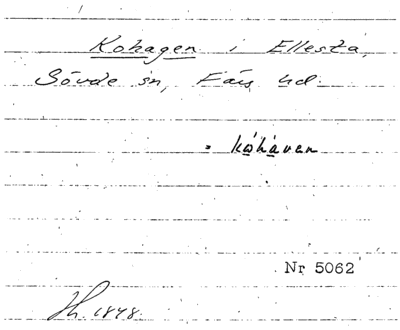 Kohagen i Ellesta,
Sövde sn, Färs hd.
= kóháven
Nr 5062
Hh. 1848.